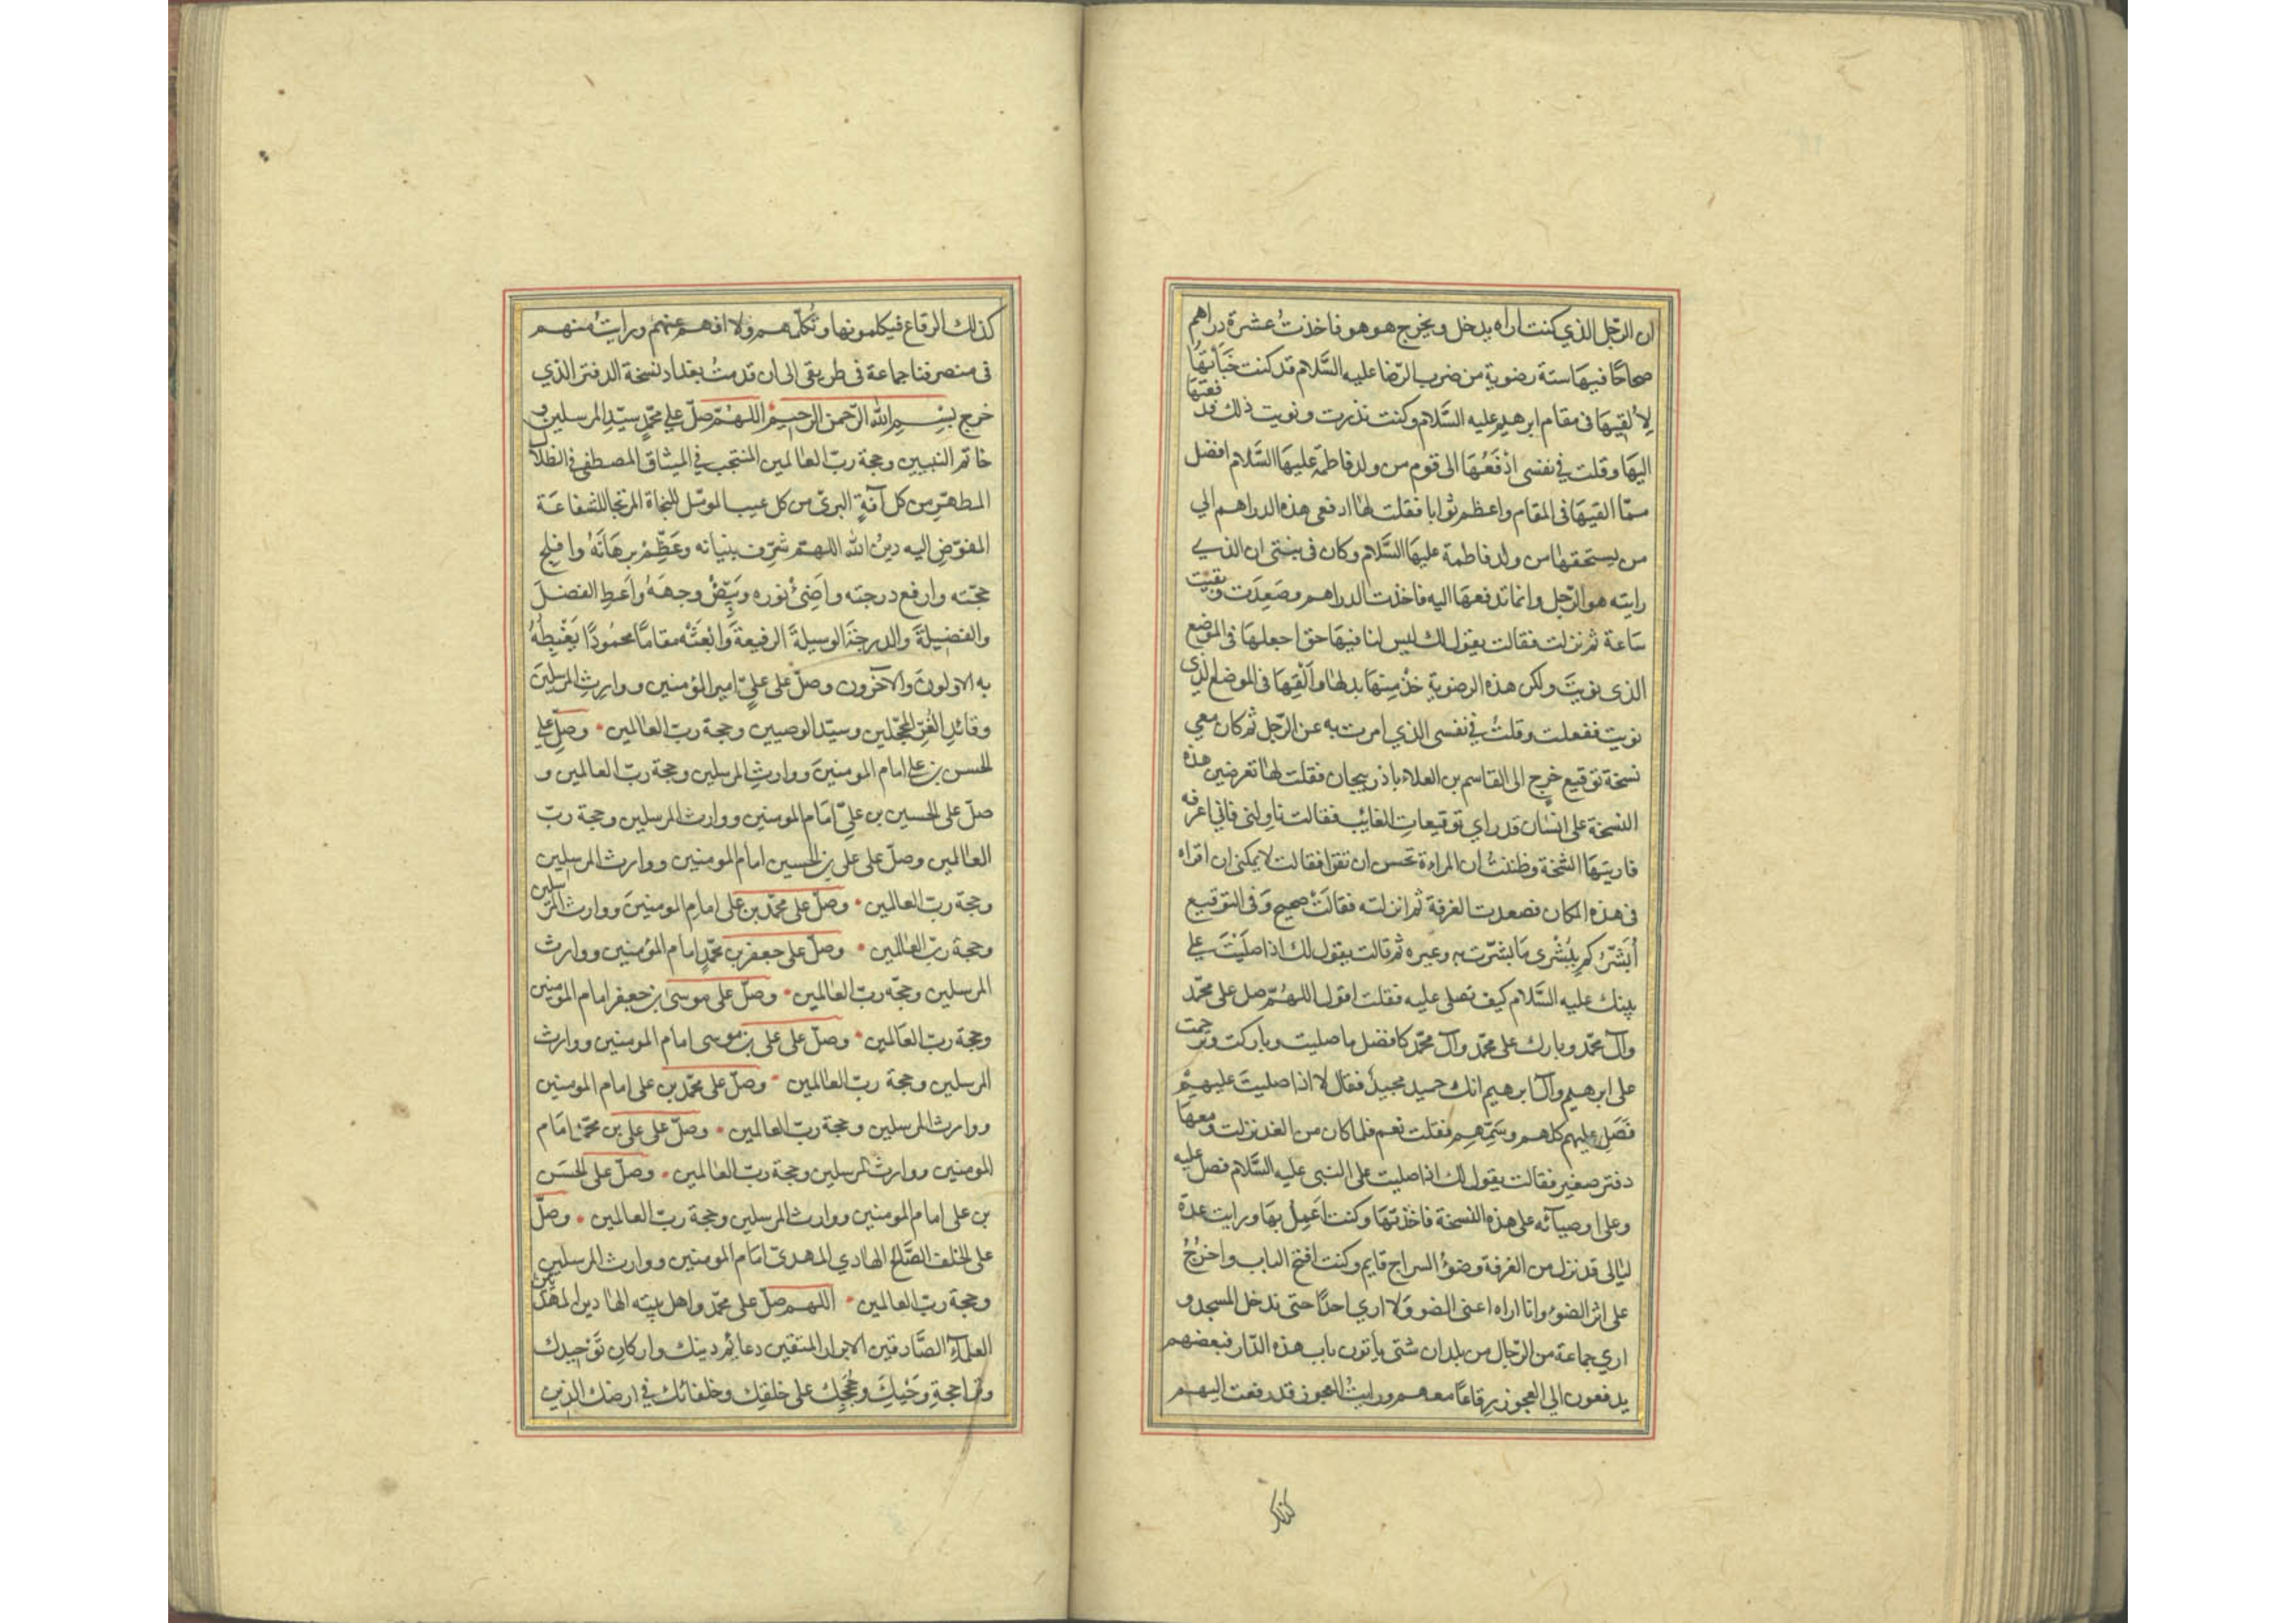 ان الرّجل الذي كنت اراه يدخل ويخرج هو هو فاخذتُ عشرة دراهم
صحاحًا فيها ستة رضوية من ضرب الرّضا عليه السَّلام قد كنت خَبَأتهَا
لِأُلقِيهَا فى مقام ابرهيم عليه السَّلام وكنت نذرت ونويت ذلك فدفعتها
اليهَا وقلت في نفسى ادْفَعُهَا الى قوم من ولد فاطمة عليهَا السَّلام افضل
ممّا القيهَا فى المقام واعظم ثوابا فقلت لهَا ادفعى هذه الدراهم الي
من يستحقها من ولد فاطمة عليهَا السَّلام وكان فى نيتى ان الذي
رايته هو الرّجل وانما تدفعهَا اليه فاخذت الدراهم وصَعِدَت وبقيت
سَاعة ثم نزلت فقالت يقول لك ليس لنا فيهَا حق اجعلهَا فى الموضع
الذى نويتَ ولكن هذه الرضوية خذْ مِنهَا بدلهَا وَاَلْقِهَا فى الموضع الذي
نويت ففعلت وقلتُ في نفسى الذي امرت به عن الرّجل ثم كان معي
نسخة توقيع خرج الى القاسم بن العلاء باذربيجان فقلت لهَا تعرضين هذه
النسخة على انسَان قد راي توقيعات الغائب فقالت ناولنى فاني اعرفه
فاريتهَا النسْخة وظننتُ ان المراءة تحسن ان تقرا فقالت لا يمكنى ان اقراه
فى هذه المكان فصعدت الغرفة ثم انزلته فقالَتْ صحيح وَفى التوقيع
اُبَشّرُكم بِبُشْرى مَا بَشّرت به وغيره ثم قالت يقول لك اذا صلَيْتَ علي
بينك عليه السَّلام كيف تصلى عليه فقلت اقول اللهُمّ صل على محمّد
وال محمّد وبارك على محمّد وال محمّد كافضل ما صليت وباركت وترحمت
على ابرهيم وال ابرهيم انك حميد مجيدٌ فقال لا اذا صليتَ عليهِمْ
فَصَلِ عليهم كلهم وسَمّهِم فقلت نعم فلما كان من الغد نزلت ومعهَا
دفتر صغير فقالت يقول لك اذا صليت على النبى عليه السَّلام فصل عليه
وعلى اوصيآئه على هذه النسخة فاخذتهَا وكنت اَعْمِلُ بهَا ورايت عدة
ليَالى قد نزل من الغرفة وضوُء السراج قايم وكنت افتح الباب واخرُجُ
على اثر الضوُء وانا اراه اعنى الضو وَلا اري احدًا حتى ندخل المسجد و
اري جماعة من الرّجال من بلدان شتى يأتون باب هذه الدّار فبعضهم
يدفعون الي العجوز برِقاعًا معهم ورايتُ العجوز قد دفعت اليهم
كذلك
كذلك الرقاع فيكلمونها وتُكلّمهم ولا افهم عنهم ورايتُ منهم
فى منصرفنا جماعة فى طريقى الى ان قدمتُ بغداد نسخة الدفتر الذي
خرج بِسْمِ اللّٰه الرّحمن الرحيمِ اللهُمّ صلّ على محمّدٍ سيّدِ المرسلين و
خاتم النبيين وحجة ربّ العالمين المنتجب في الميثاق المصطفى في الظلال
المطهرِ من كل آفةٍ البرىّ من كل عيب الموئل للنجاة المرتجا للشفاعَة
المفوّضِ اليه دينُ اللّٰه اللهمّ شرّف بنيانه وعَظِّمْ برهَانَهُ وافلج
حجّته وارفع درجته واَضِئْ نوره وبَيّضْ وجههُ واَعطِ الفضلَ
والفضيلةَ والدرجَةَ الوسيلةَ الرفيعةَ وَابْعَثْه مقامًا محمُودًا يَغْبِطُهُ
به الاولونَ والآخرون وصلّ على عليّ امير المؤمنين ووارثِ المرسلينَ
وقائدِ الغُرّ المحجّلين وسيّد الوصيين وحجة ربّ العالمين • وصلّ علي
الحسن بن علي امام المومنينَ ووارثِ المرسلين وحجة ربّ العالمين و
صلّ على الحسين بن عليّ امَام المومنين ووارث المرسلين وحجة ربّ
العالمين وصلّ على على بن الحسين امام المومنين ووارث المرسلين
وحجة ربّ العالمين • وصلّ على محمّد بن على امام المومنينَ ووارث المرسلين
وحجة ربّ العالمين • وصلّ على جعفر بن محمّدٍ امام المؤمنين ووارث
المرسلين وحجّة ربّ العالمين • وصلّ على موسىٰ بن جعفر امام المومنين
وحجة ربّ العَالمين • وصلّ على على بن موسى امام المومنين ووارث
المرسلين وحجة ربّ العالمين • وصلّ على محمّد بن على امام المومنين
ووارث المرسلين وحجة ربّ العالمين • وصلّ على على بن محمّد امَام
المومنين ووارث المرسلين وحجة ربّ العالمين • وصلّ على الحسَن
بن على امام المومنين ووارث المرسلين وحجة ربّ العالمين • وصلّ
على الخلف الصَّالح الهَادي المهدىّ امَام المومنين ووارث المرسلين
وحجة ربّ العالمين • اللهم صلّ على محمّد واهل بيته الهادين المهديّين
العلمآءِ الصَّادقين الابرار المتقين دعائم دينك واركانِ تَوْحِيدك
وتراجمةِ وَحْيِكَ وحُجَجِك على خلقِك وخلفائك في ارضك الذين